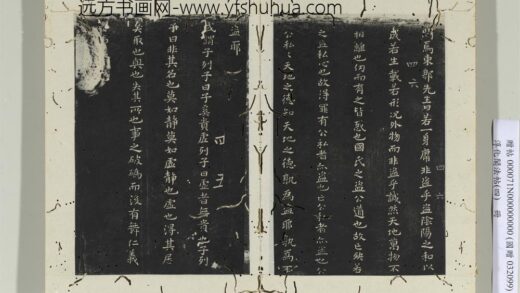 远方书画网-www.yfshuhua.com
問焉東郭先生曰若一身庸非盜乎盜陰陽之和以
四六
成若生載若形況外物而非盜乎誠然天地萬物不
相離也仞而有之皆惑也國氏之盜公道也故亡殃若
之盜私心也故得罪有公私者亦盜也亡公私者亦盜也公
公私私天地之德知天地之德孰為盜耶孰為不
盜耶
四五
或謂子列子曰子奚貴虛列子曰虛者無貴也子列
子曰非其名也莫如靜莫如虛靜也虛也得其居
矣取也與也失其所也事之破而後有舞仁義
贈帖 00007IN000000000 (國贈 032099)
淳化閣法帖(四) 冊